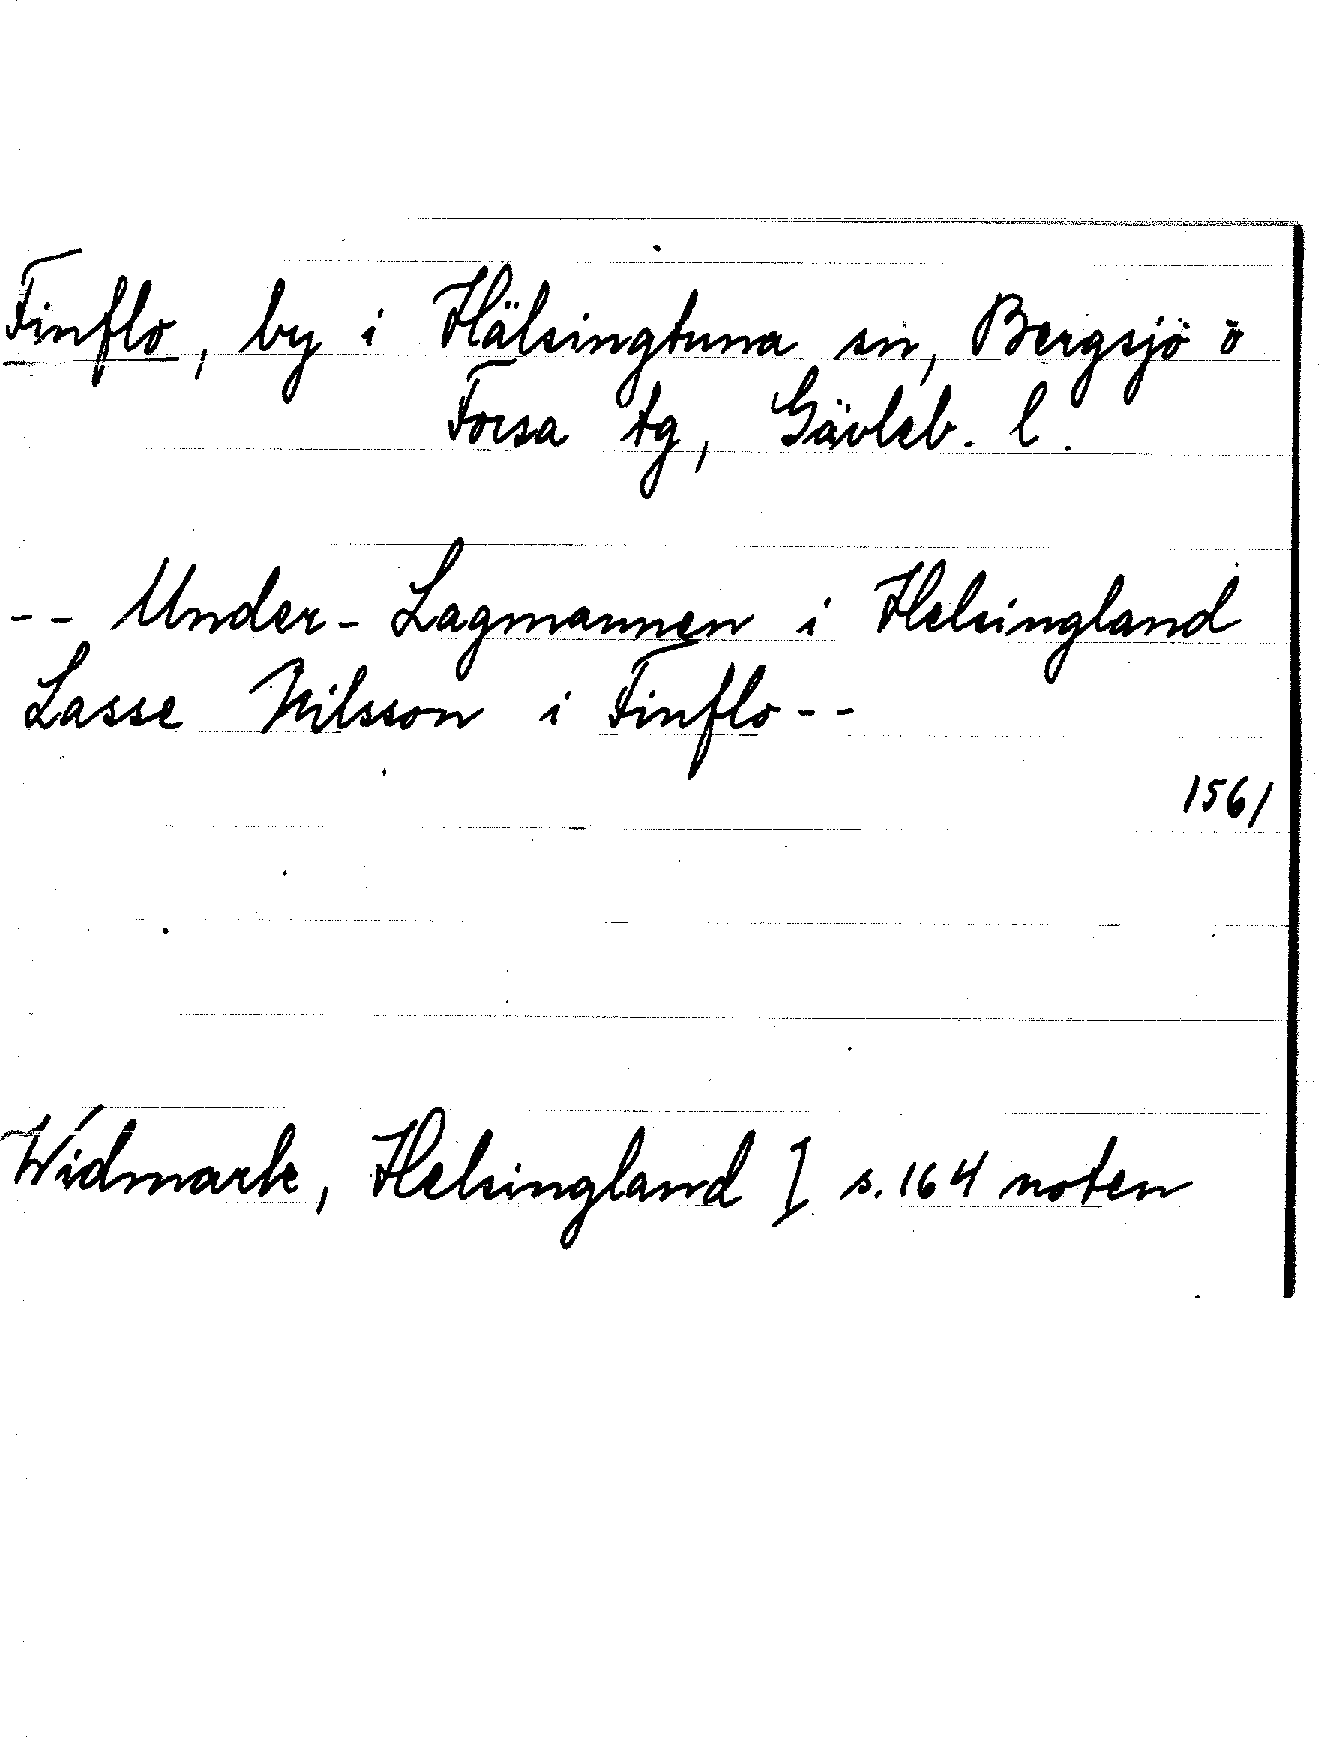 Finflo, by i Hälsingtuna sn, Bergsjö o
Forsa tg, Gävleb. l.
-- Under-Lagmannen i Helsingland
Lasse Nilsson i Finflo--
1561
Widmark, Helsingland I s. 164 noten